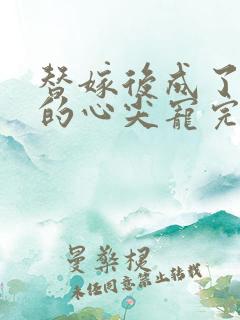 替嫁后成了
的心尖宠完
曼桑梗
未经同意禁止转载